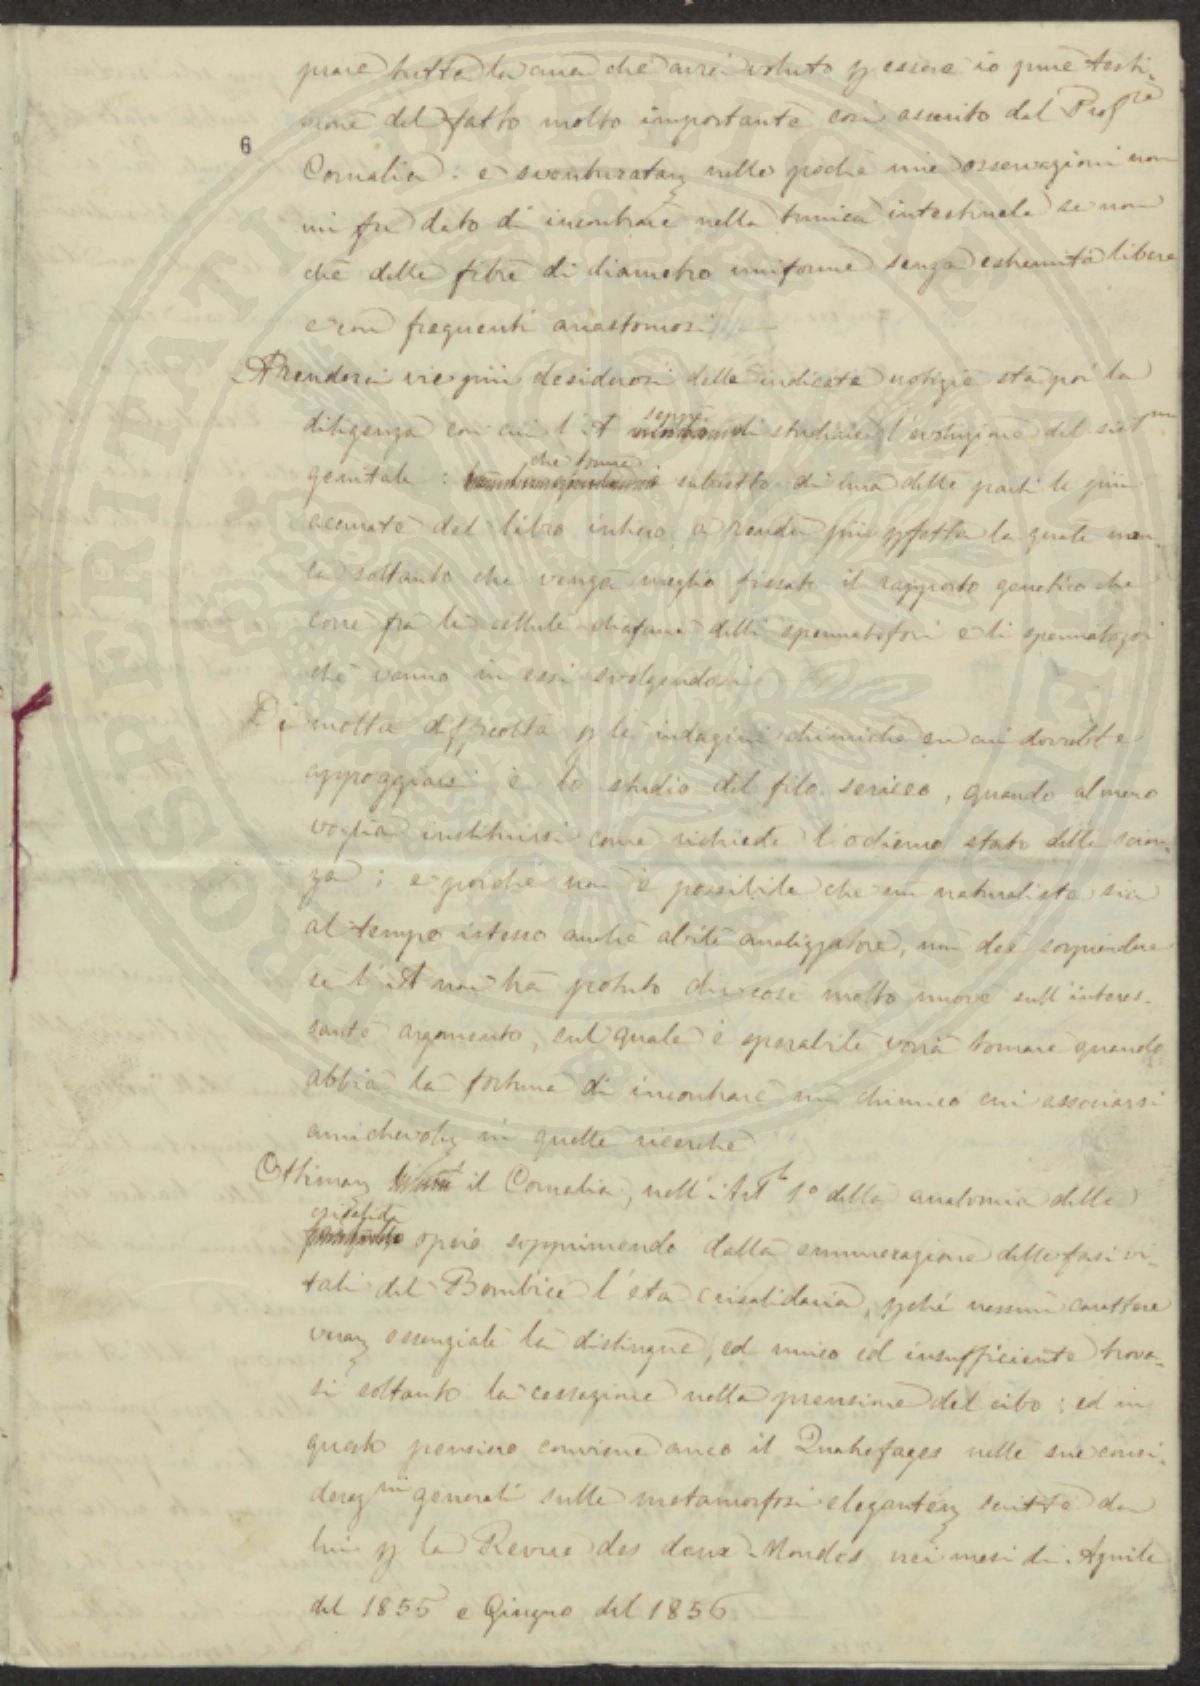 prare tutta la cura che avrei voluto p essere io pure testi-
mone del fatto molto importante così asserito dal Prof.re
6
Cornalia: e sventuratam nelle poche mie osservazioni non
mi fu dato di incontrare nella tunica intestinale se non
che delle fibre di diametro uniforme senza estremità libere
e con frequenti anastomosi
A renderci vie più desiderosi delle indicate notizie sta poi la
diligenza con cui l'A seppe studiare l'evoluzione del sist
genitale: che forma subietto di una delle parti le più
accurate del libro intero, a render più pfetta la quale man-
ca soltanto che venga meglio fissato il rapporto genetico che
corre fra le cellule diafane delli spermatofori e li spermatozoi
che vanno in essi svolgendosi
Di molta difficoltà p le indagini chimiche su cui dovrebbe
appoggiarsi è lo studio del filo sericeo, quando almeno
voglia instituirsi come richiede l'odierno stato della scien-
za; e poiche non è possibile che un naturalista sia
al tempo istesso anche abile analizzatore, non dee sorprendere
se l'A non ha potuto dir cose molto nuove sull'interes-
sante argomento, sul quale è sperabile vorrà tornare quando
abbia la fortuna di incontrare un chimico cui associarsi
amichevolm in quelle ricerche
Ottimam il Cornalia, nell'Art 1o della anatomia della
crisalide operò sopprimendo dalla enumerazione delle fasi vi-
tali del Bombice l'età crisalidaria, pché nessun carattere
veram essenziale la distingue, ed unico ed insufficiente trova-
si soltanto la cessazione nella prensione del cibo: ed in
questo pensiero conviene anco il Quatrefages nelle sue consi-
derazni generali sulle metamorfosi elegantem scritte da
lui p la Revue des deux Mondes nei mesi di Aprile
del 1855 e Giugno del 1856